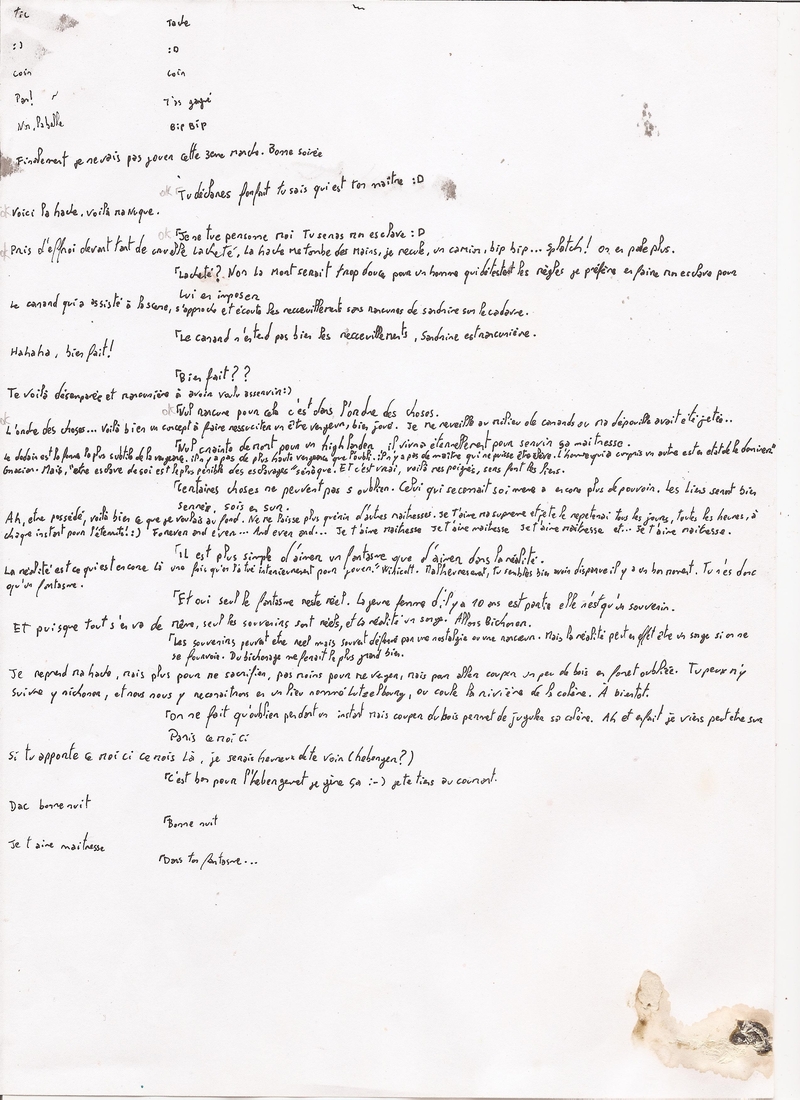 tic
Tacle
:)
:D
coin
coin
Pan!
T'as gagné
Non, la balle
Bip Bip
Finalement je ne vais pas jouer cette 3eme manche. Bonne soirée
ok Tu déclares forfait tu sais qui est ton maître :D
ok Voici la hache, voilà ma nuque.
ok Je ne tue personne moi Tu seras mon esclave :D
ok Pris d'effroi devant tant de cruelle lacheté, La hache me tombe des mains, je recule, un camion, bip bip... splotch! on en parle plus.
Lacheté? Non la mort serait trop douce pour un homme qui détestait les règles je préfère en faire mon esclave pour
lui en imposer
Le canard qui a assisté à la scene, s'approche et écoute les recceuillements sans rancunes de sandrine sur le cadavre.
Le canard n'entend pas bien les recceuillements, Sandrine est rancunière.
Hahaha, bien fait!
Bien fait??
Te voilà désemparée et rancunière à avoir voulu asservir:)
ok Nul rancune pour cela c'est dans l'ordre des choses.
L'ordre des choses... Voilà bien un concept à faire ressusciter un être vengeur, bien joué. Je me reveille au milieu de canards ou ma dépouille avait été jetée..
Nul crainte de mort pour un highlander, il vivra éternellement pour servir sa maitresse.
Le dedain est la forme la plus subtile de la vengeance. il n'y a pas de plus haute vengeance que l'oubli. il n'y a pas de maître qui ne puisse être élève. L'homme qui a compris un autre est en état de le dominer"
Gracian. Mais, "etre esclave de soi est le plus pénible des esclavages" sénèque. Et c'est vrai, voilà mes poignés, sens fort les liens.
Certaines choses ne peuvent pas s oublier. Celui qui se connait soi meme a encore plus de pouvoir. Les liens seront bien
serrés, sois en sur.
Ah, etre possédé, voilà bien ce que je voulais au fond. Ne me laisse plus prémir d'autres maitresses. Je t'aime ma supreme et je te le repeterai tous les jours, toutes les heures, à
chaque instant pour l'éternité!:) Forever and ever... And ever and... Je t'aime maitresse Je t'aime maitresse Je t'aime maitresse et... Je t'aime maitresse.
il est plus simple d'aimer un fantasme que d'aimer dans la réalité.
La réalité est ce qui est encore là une fois qu'on l'a tué interieurement pour jouer." Winicott. Malheureusement, tu sembles bien avoir disparue il y a un bon moment. Tu n'es donc
qu'un fantasme.
Et oui seul le fantasme reste réel. La jeune femme d'il y a 10 ans est partie elle n'est qu'un souvenir.
Et puisque tout s'en va de même, seul les souvenirs sont réels, et la réalité un songe. Allons Bichonner.
Les souvenirs peuvent etre reel mais souvent déformé par une nostalgie ou une rancœur. Mais la réalité peut en effet être un songe si on ne
se fourvoir. Du bichonage me ferait le plus grand bien.
Je reprend ma hache, mais plus pour me sacrifier, pas moins pour me venger, mais pour aller couper un peu de bois en foret oubliée. Tu peux m'y
suivre y bichoner, et nous nous y reconaitrons en un lieu nommé Lutzelbourg, ou coule la rivière de la colère. À bientot.
on ne fait qu'oublier pendant un instant mais couper du bois permet de juguler sa colère. Ah et enfait je viens peut etre sur
Paris ce moi ci
Si tu apporte ce moi ci ce mois là, je serais heureux de te voir (heberger?)
c'est bon pour l'hebergement je gère ça :-) je te tiens au courrant.
Dac bonne nuit
Bonne nuit
Je t aime maitresse
Dans ton fantasme...